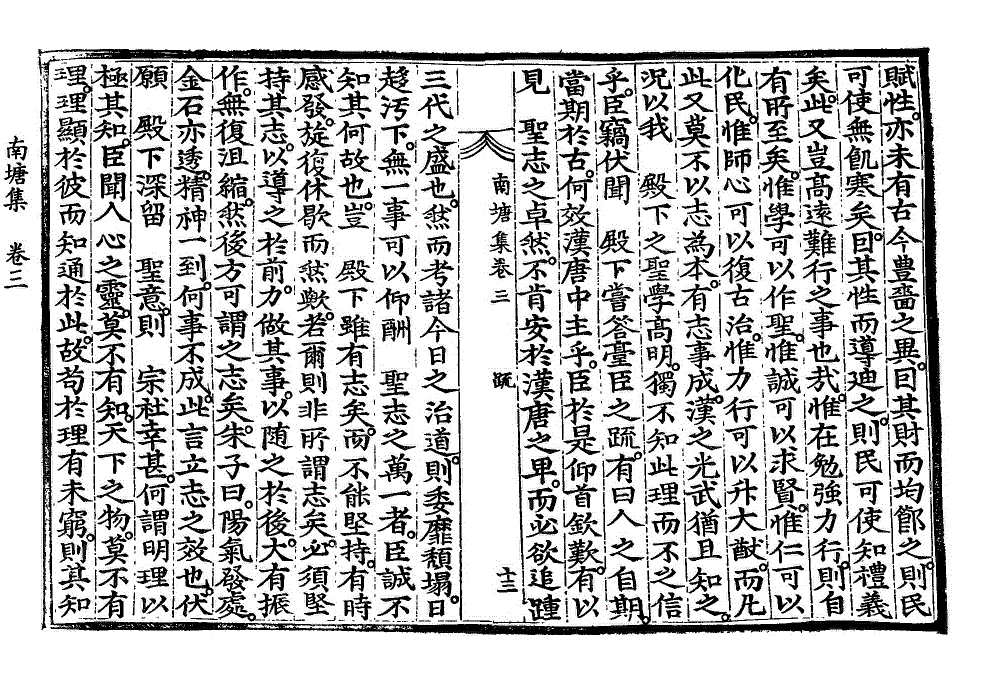 賦性。亦未有古今豊嗇之異。因其財而均節之。則民
可使無飢寒矣。因其性而導迪之。則民可使知禮義
矣。此又豈高遠難行之事也哉。惟在勉強力行。則自
有所至矣。惟學可以作聖。惟誠可以求賢。惟仁可以
化民。惟師心可以復古治。惟力行可以升大猷。而凡
此又莫不以志為本。有志事成。漢之光武猶且知之。
况以我　殿下之聖學高明。獨不知此理而不之信
乎。臣竊伏聞　殿下嘗答臺臣之疏。有曰人之自期。
當期於古。何效漢唐中主乎。臣於是仰首欽歎。有以
見　聖志之卓然。不肯安於漢唐之卑。而必欲追踵
南塘集卷三　疏　十三
三代之盛也。然而考諸今日之治道。則委靡頹塌。日
趍汚下。無一事可以仰酬　聖志之萬一者。臣誠不
知其何故也。豈　殿下雖有志矣。而不能堅持。有時
感發。旋復休歇而然歟。若爾則非所謂志矣。必須堅
持其志。以導之於前。力做其事。以隨之於後。大有振
作。無復沮縮。然後方可謂之志矣。朱子曰。陽氣發處。
金石亦透。精神一到。何事不成。此言立志之效也。伏
願　殿下深留　聖意。則　宗社幸甚。何謂明理以
極其知。臣聞人心之靈。莫不有知。天下之物。莫不有
理。理顯於彼而知通於此。故苟於理有未窮。則其知
南塘集　卷三